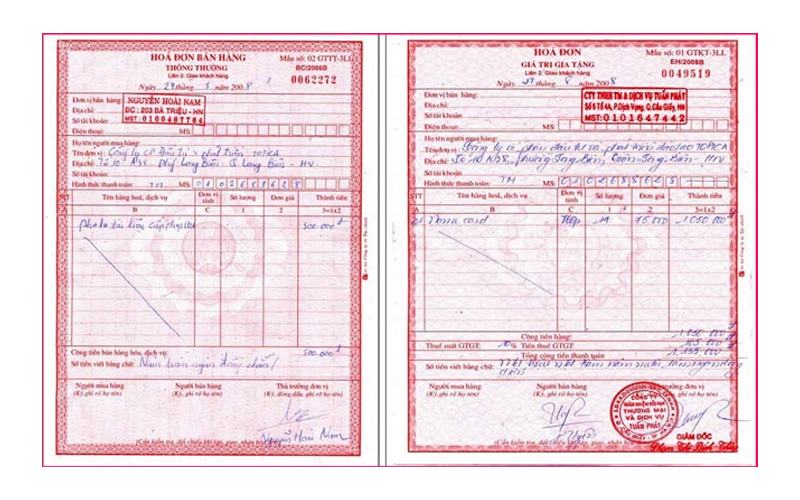 HOÁ ĐƠN BÁN HÀNG
THÔNG THƯỜNG
Liên 2: Giao khách hàng
Ngày 29 tháng 8 năm 2008
Mẫu số: 02 GTTT-3LL
BC/2008B
0062272
Đơn vị bán hàng: NGUYỄN HOÀI NAM
Địa chỉ: ĐC: 203 BÀ TRIỆU - HN
Số tài khoản: MST: 0100487764
Điện thoại: MS:
Họ tên người mua hàng:
Tên đơn vị: Công ty CP Đầu tư phát triển TOPICA
Địa chỉ: Tổ 10 Long Biên - Q Long Biên - HN
Số tài khoản:
Hình thức thanh toán: TM MS: 0102688628
STT Tên hàng hoá, dịch vụ Đơn vị tính Số lượng Đơn giá Thành tiền
A B C 1 2 3=1x2
Photo tài liệu 500.000đ
Cộng tiền bán hàng hóa, dịch vụ: 500.000đ
Số tiền viết bằng chữ: Năm trăm ngàn đồng chẵn
Người mua hàng Người bán hàng Thủ trưởng đơn vị
(Ký, ghi rõ họ tên) (Ký, ghi rõ họ tên) (Ký, đóng dấu, ghi rõ họ tên)
Nguyễn Hoài Nam
HOÁ ĐƠN
GIÁ TRỊ GIA TĂNG
Liên 2: Giao khách hàng
Ngày 29 tháng 8 năm 2008
Mẫu số: 01 GTKT-3LL
EH/2008B
0049519
Đơn vị bán hàng: CTY TNHH TM & DỊCH VỤ TUẤN PHÁT
Địa chỉ: Số 6 Tổ 4A, P.Dịch Vọng, Q.Cầu Giấy, HN
Số tài khoản: MST: 0101647442
Điện thoại: MS:
Họ tên người mua hàng:
Tên đơn vị: Công ty cổ phần đầu tư và phát triển TOPICA
Địa chỉ: Tổ 10 phường Long Biên, Quận Long Biên - HN
Số tài khoản:
Hình thức thanh toán: TM MS: 0102688628
STT Tên hàng hoá, dịch vụ Đơn vị tính Số lượng Đơn giá Thành tiền
A B C 1 2 3=1x2
card Hộp 14 75.000 1.050.000đ
Cộng tiền hàng: 1.050.000đ
Thuế suất GTGT: 10% Tiền thuế GTGT: 105.000đ
Tổng cộng tiền thanh toán 1.155.000đ
Số tiền viết bằng chữ: Một triệu một trăm năm mươi lăm ngàn đồng
Người mua hàng Người bán hàng
(Ký, ghi rõ họ tên) (Ký, ghi rõ họ tên)
CÔNG TY
TRÁCH NHIỆM HỮU HẠN
THƯƠNG MẠI
VÀ DỊCH VỤ
TUẤN PHÁT
GIÁM ĐỐC